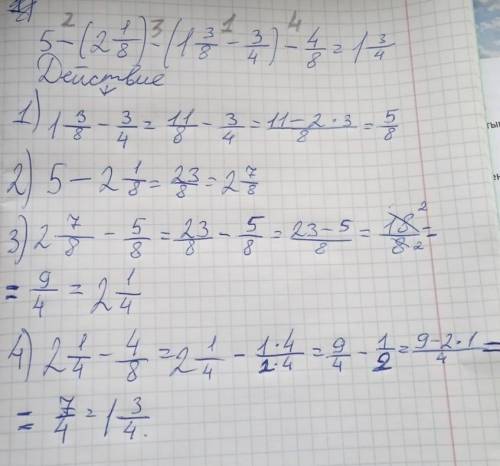 2 3 1 4
5 - (2 1/8) - (1 3/8 - 3/4) - 4/8 = 1 3/4
Действие
↓
1) 1 3/8 - 3/4 = 11/8 - 3/4 = (11 - 2 · 3)/8 = 5/8
2) 5 - 2 1/8 = 23/8 = 2 7/8
3) 2 7/8 - 5/8 = 23/8 - 5/8 = (23 - 5)/8 = 18 2/8 2 =
= 9/4 = 2 1/4
4) 2 1/4 - 4/8 = 2 1/4 - (1·4)/(2·4) = 9/4 - 1/2 = (9 - 2 · 1)/4 =
= 7/4 = 1 3/4.